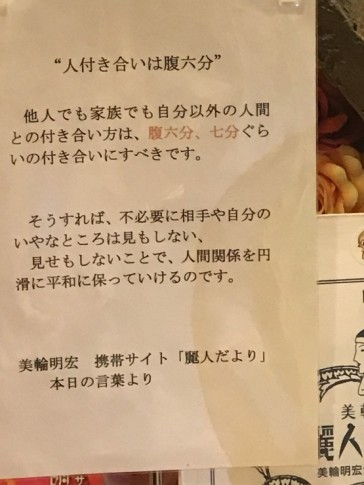 “人付き合いは腹六分”
他人でも家族でも自分以外の人間
との付き合い方は、腹六分、七分ぐら
いの付き合いにすべきです。
そうすれば、不必要に相手や自分の
いやなところは見もしない、
見せもしないことで、人間関係を円
滑に平和に保っていけるのです。
美輪明宏　携帯サイト「麗人だより」
本日の言葉より
美輪
麗人
美輪明宏